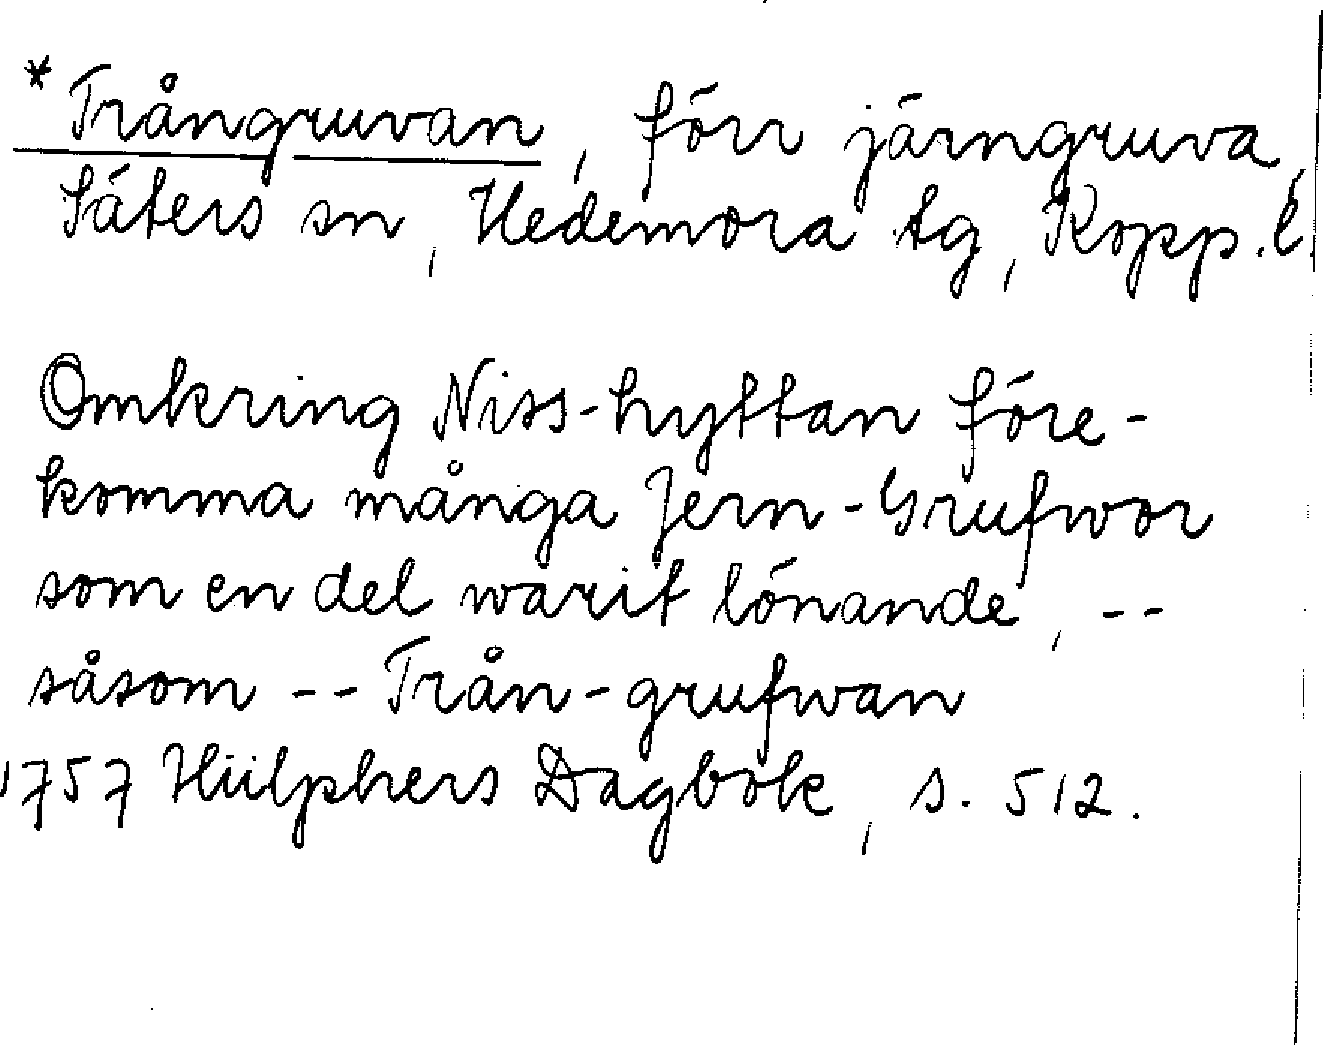 *Trångruvan, förr järngruva,
Säters sn, Hedemora tg, Kopp. l.
Omkring Niss-hyttan före-
komma många Jern-Grufwor
som en del warit lönande, --
såsom -- Trån-grufwan
1757 Hülphers Dagbok, s. 512.